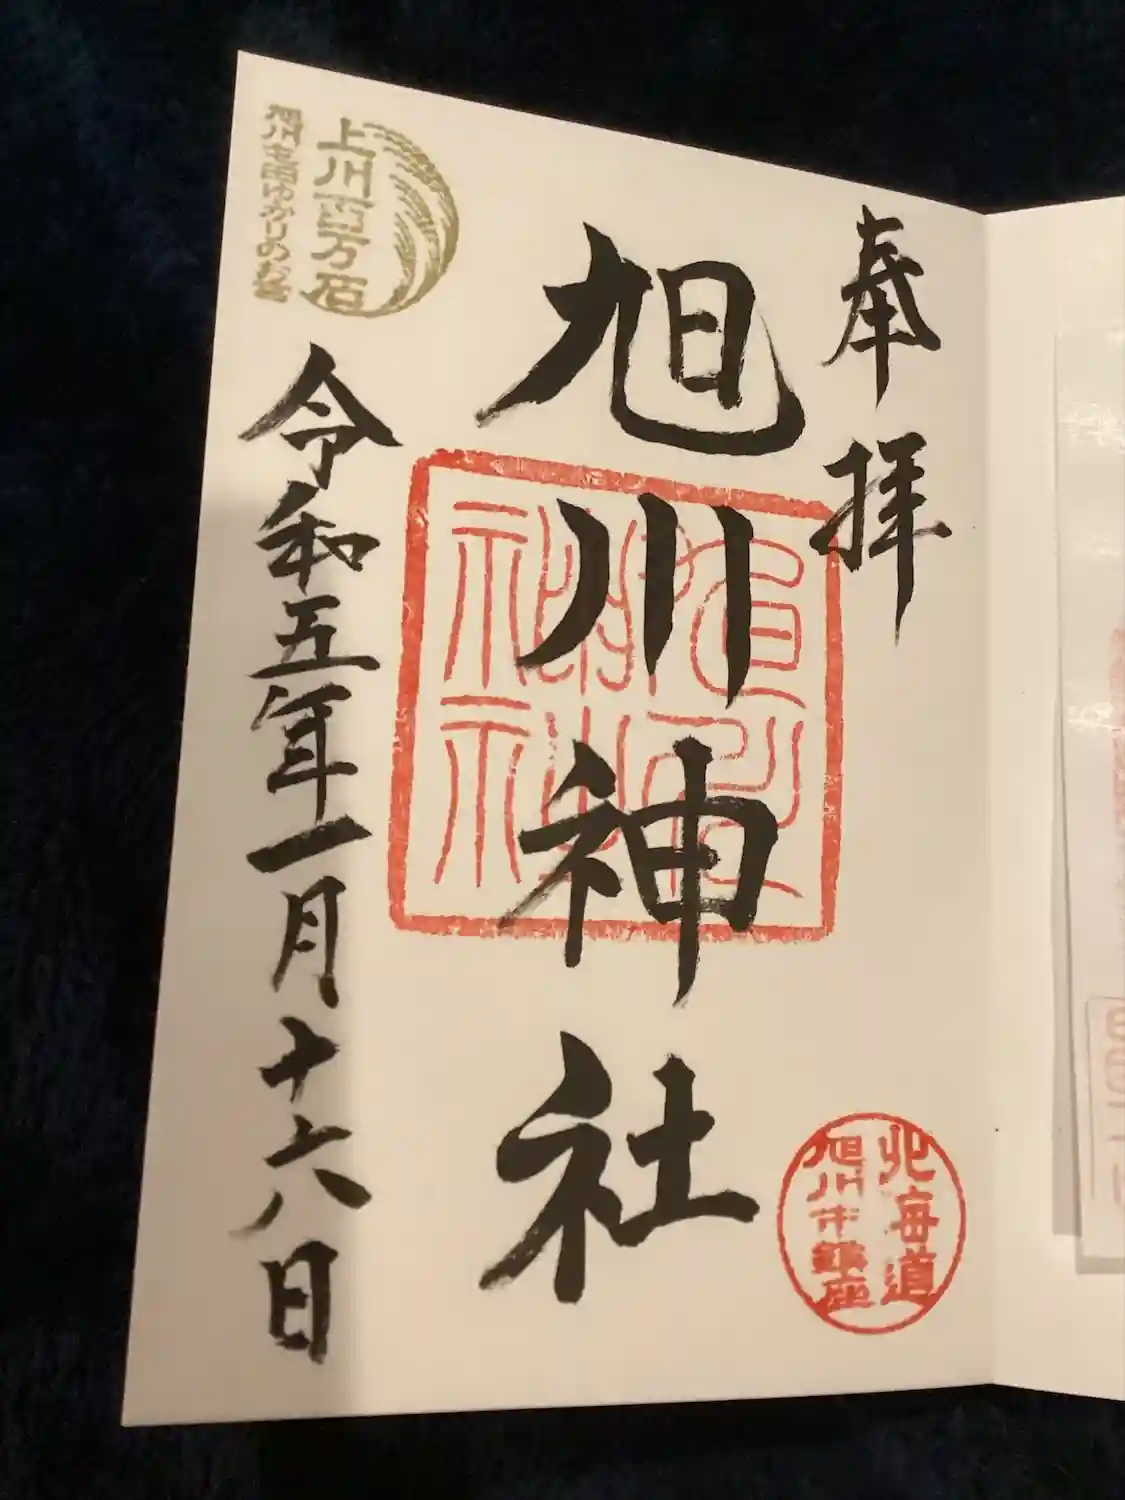 奉拝
旭川神社
令和五年一月十六日
上川百万石
旭川屯田ゆかりのお宮
北海道
旭川市鎮座